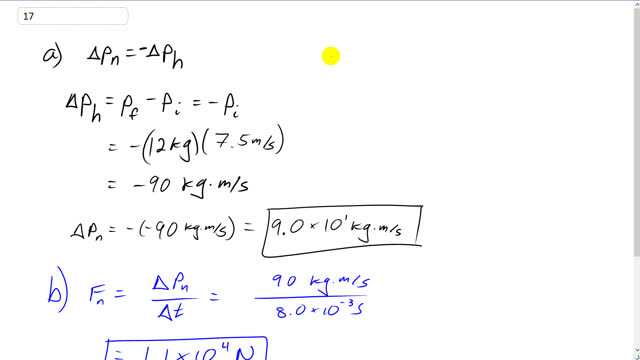 17
a) Δpₙ = -Δpₕ
Δpₕ = p_f - p_i = - p_i
= -(12kg)(7.5m/s)
= -90 kg·m/s
Δpₙ = -(-90 kg·m/s) = 9.0 × 10¹ kg·m/s
b) Fₙ = Δpₙ / Δt = 90 kg·m/s / 8.0 × 10⁻³ s
= 1.1 × 10⁴ N